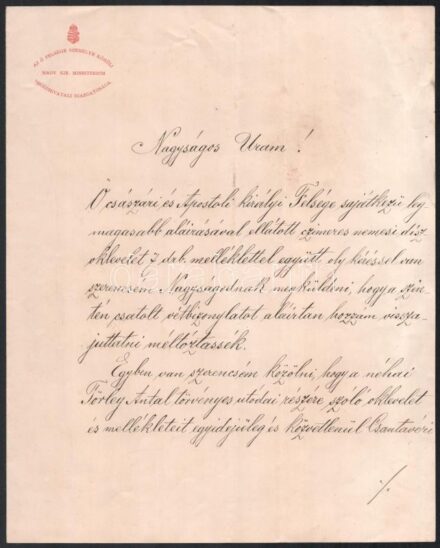 AZ Ő FELSÉGE SZEMÉLYE KÖRÜLI
MAGY. KIR. MINISTERIUM
SEGÉDHIVATALI IGAZGATÓSÁGA.
Nagyságos Uram!
Ő császári és Apostoli királyi Felsége sajátkezü leg-
magasabb aláirásával ellátott czimeres nemesi disz
oklevelet 2 drb melléklettel együtt oly kéréssel van
szerencsém Nagyságodnak megküldeni, hogy a szin-
tén csatolt vétbizonylatot aláirtan hozzám vissza-
juttatni méltóztassék.
Egyben van szerencsém közölni, hogy a néhai
Törley Antal törvényes utódai részére szóló oklevelet
és mellékleteit egyidejüleg és közvetlenül Csantavéri
./.